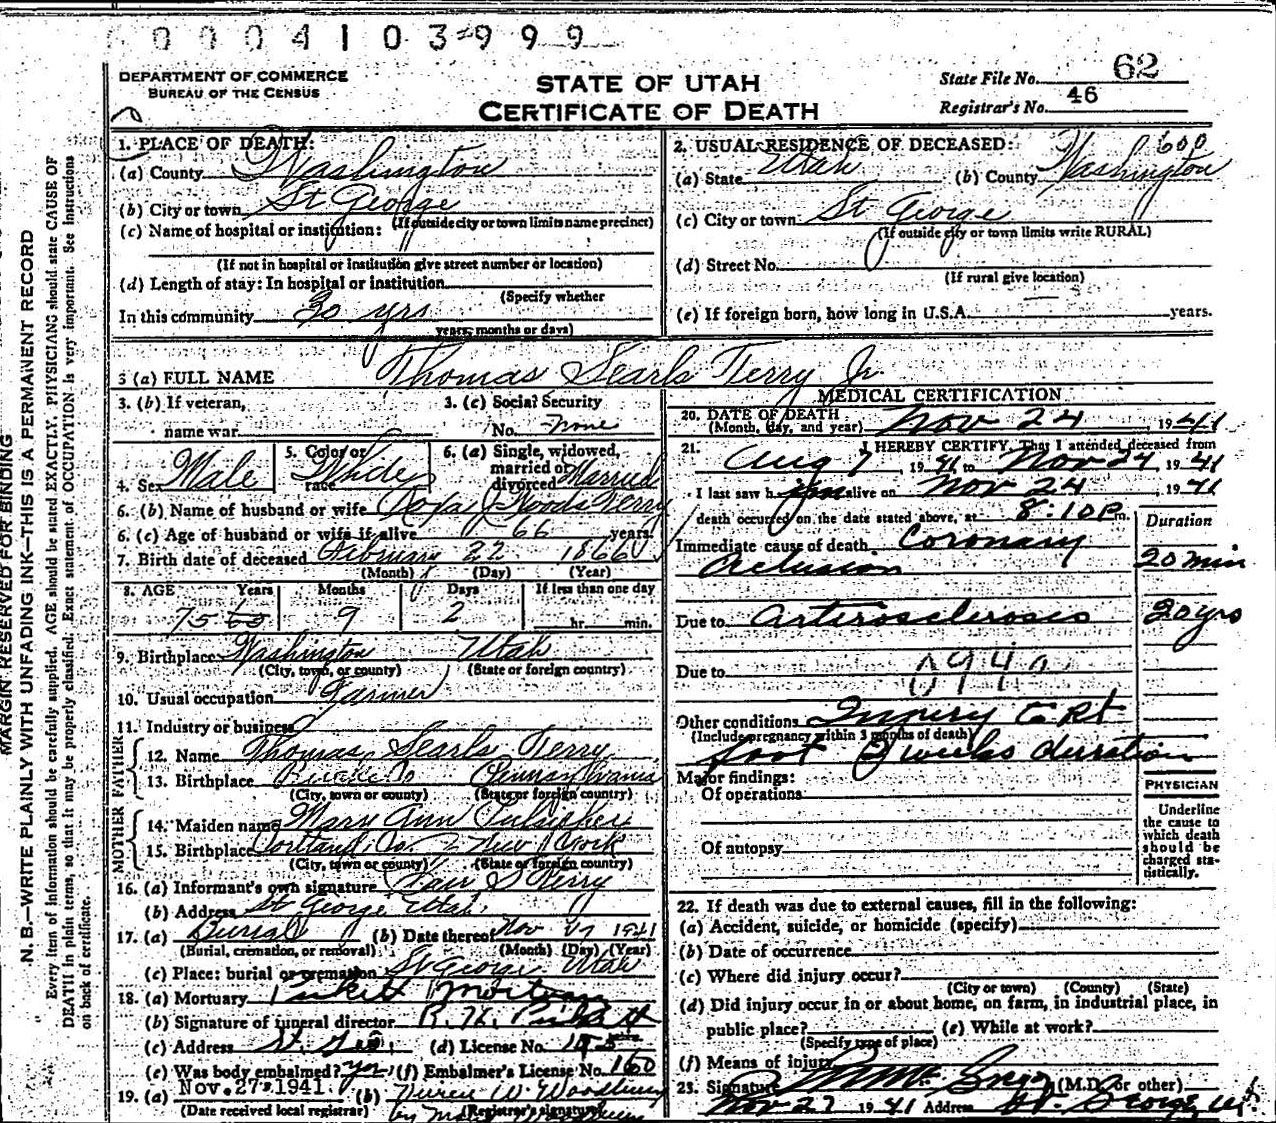 0004103999
DEPARTMENT OF COMMERCE
BUREAU OF THE CENSUS
STATE OF UTAH
CERTIFICATE OF DEATH
State File No. 62
Registrar's No. 46
MARGIN RESERVED FOR BINDING
N. B.—WRITE PLAINLY WITH UNFADING INK—THIS IS A PERMANENT RECORD
Every item of information should be carefully supplied. AGE should be stated EXACTLY. PHYSICIANS should state CAUSE OF
DEATH in plain terms, so that it may be properly classified. Exact statement of OCCUPATION is very important. See instructions
on back of certificate.
1. PLACE OF DEATH:
(a) County Washington
(b) City or town St George
(If outside city or town limits name precinct)
(c) Name of hospital or institution:
(If not in hospital or institution give street number or location)
(d) Length of stay: In hospital or institution
(Specify whether
In this community 30 yrs
years, months or days)
2. USUAL RESIDENCE OF DECEASED: 600
(a) State Utah (b) County Washington
(c) City or town St George
(If outside city or town limits write RURAL)
(d) Street No.
(If rural give location)
(e) If foreign born, how long in U.S.A. years.
3 (a) FULL NAME Thomas Searls Terry Jr
3. (b) If veteran,
name war
3. (c) Social Security
No. None
4. Sex Male
5. Color or
race White
6. (a) Single, widowed,
married or
divorced Married
6. (b) Name of husband or wife Terry
6. (c) Age of husband or wife if alive 66 years.
7. Birth date of deceased February 22 1866
(Month) (Day) (Year)
8. AGE Years Months Days If less than one day
75 9 2 hr. min.
9. Birthplace Washington Utah
(City, town, or county) (State or foreign country)
10. Usual occupation Farmer
11. Industry or business
FATHER
12. Name Thomas Searls Terry
13. Birthplace Pennsylvania
(City, town or county) (State or foreign country)
MOTHER
14. Maiden name Mary Ann Pulsipher
15. Birthplace Co. New York
(City, town or county) (State or foreign country)
16. (a) Informant's own signature Terry
(b) Address St George Utah
17. (a) Burial (b) Date thereof Nov 27 1941
(Burial, cremation, or removal) (Month) (Day) (Year)
(c) Place: burial or cremation St George Utah
18. (a) Mortuary Pickett Mortuary
(b) Signature of funeral director R. H. Pickett
(c) Address St. Geo. (d) License No.
(e) Was body embalmed? yes (f) Embalmer's License No. 160
19. (a) Nov. 27, 1941. (b) W. Woodbury
(Date received local registrar) (Registrar's signature)
by Woodbury
MEDICAL CERTIFICATION
20. DATE OF DEATH
(Month, day, and year) Nov 24 1941
21. I HEREBY CERTIFY, That I attended deceased from
Aug 7, 1941 to Nov 24, 1941
I last saw him alive on Nov 24, 1941
death occurred on the date stated above, at 8:10 P m.
Duration
Immediate cause of death Coronary
occlusion 20 min
Due to arteriosclerosis 20 yrs
Due to 094a
Other conditions Injury to Rt
(Include pregnancy within 3 months of death)
foot 2 weeks duration
Major findings:
Of operations
Of autopsy
PHYSICIAN
Underline
the cause to
which death
should be
charged sta-
tistically.
22. If death was due to external causes, fill in the following:
(a) Accident, suicide, or homicide (specify)
(b) Date of occurrence
(c) Where did injury occur?
(City or town) (County) (State)
(d) Did injury occur in or about home, on farm, in industrial place, in
public place? (e) While at work?
(Specify type of place)
(f) Means of injury
23. Signature (M.D. or other)
Nov 27 1941 Address St. George, Ut.